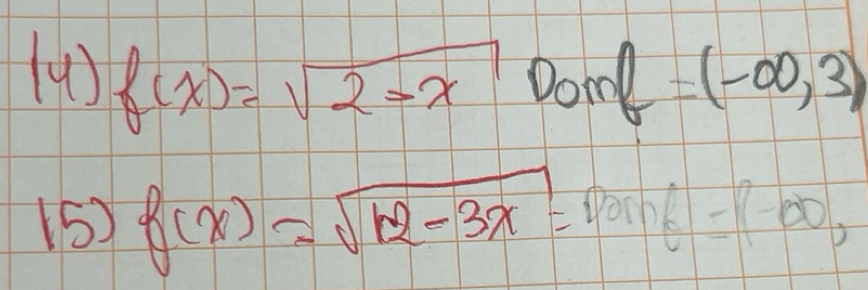 14) f(x) = √2-x Domf = (-∞, 3)
15) f(x) = √12-3x = Domf = (-∞,